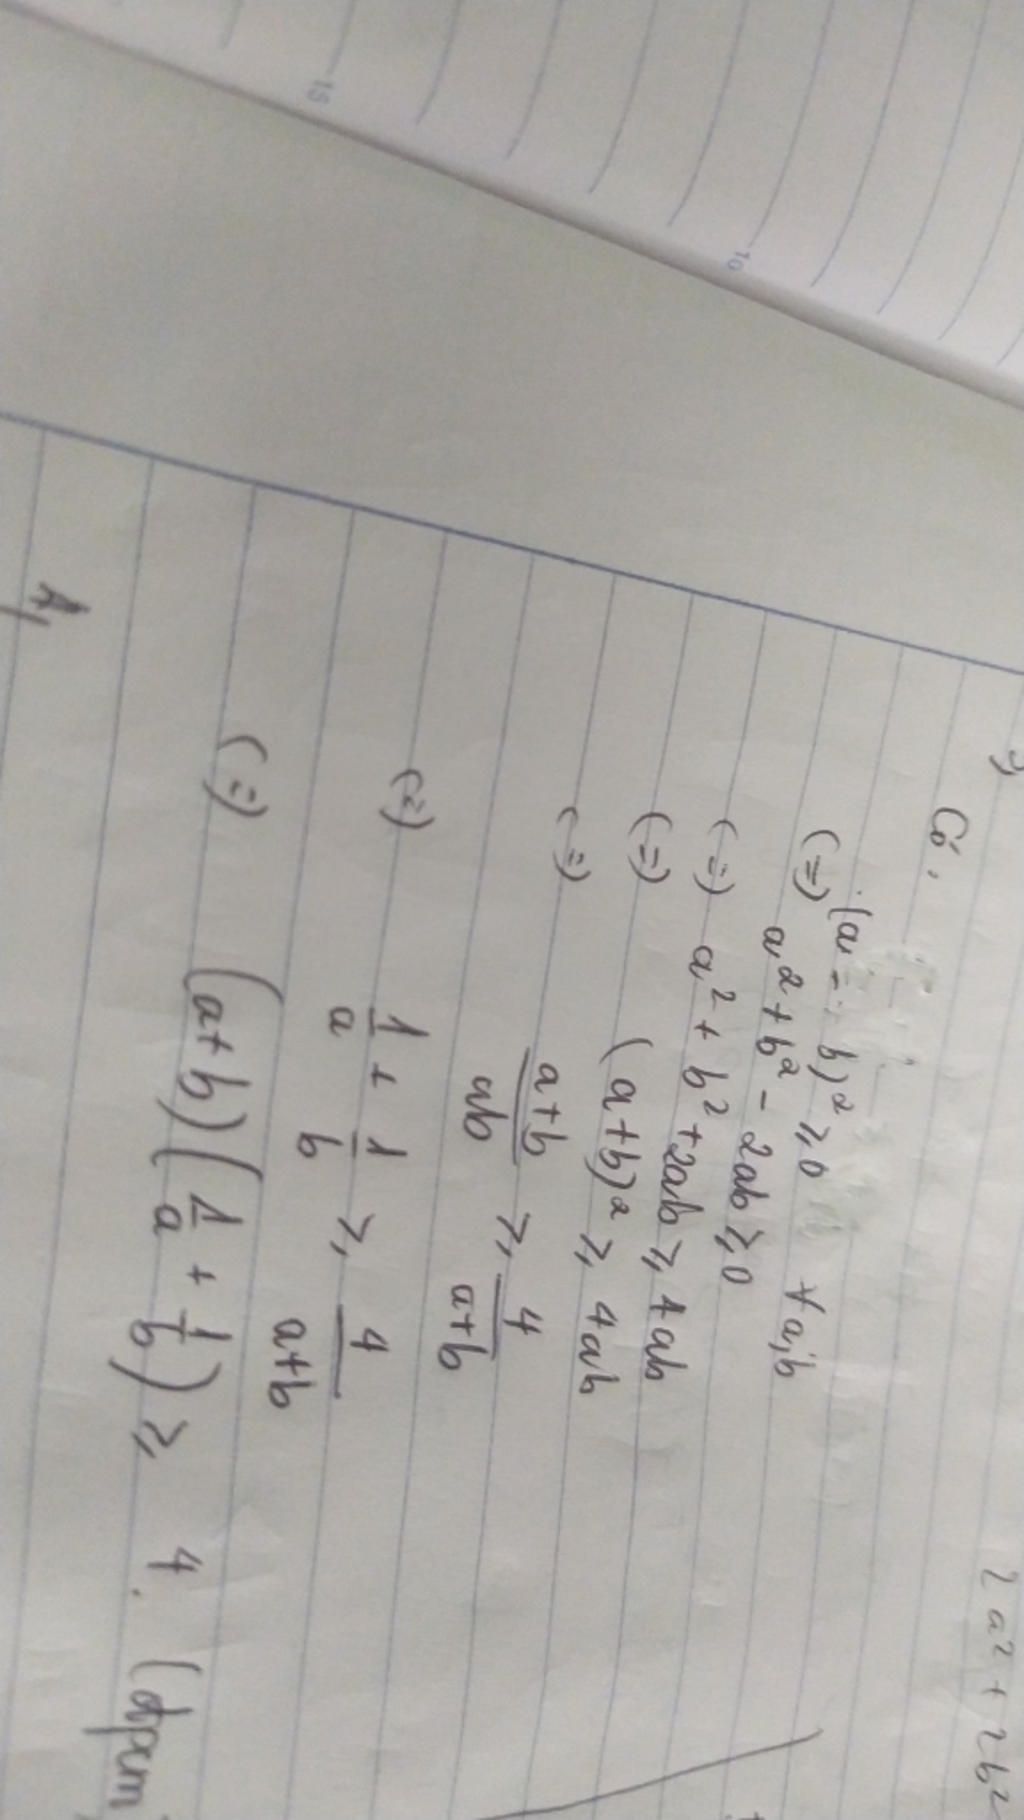 2a² + 2b²
Có,
(a - b)² ≥ 0 ∀a;b
(=) a² + b² - 2ab ≥ 0
(=) a² + b² + 2ab ≥ 4ab
(=) (a+b)² ≥ 4ab
(=) \frac{a+b}{ab} ≥ \frac{4}{a+b}
(=) \frac{1}{a} + \frac{1}{b} ≥ \frac{4}{a+b}
(=) (a+b)(\frac{1}{a} + \frac{1}{b}) ≥ 4. (đpcm
15
10